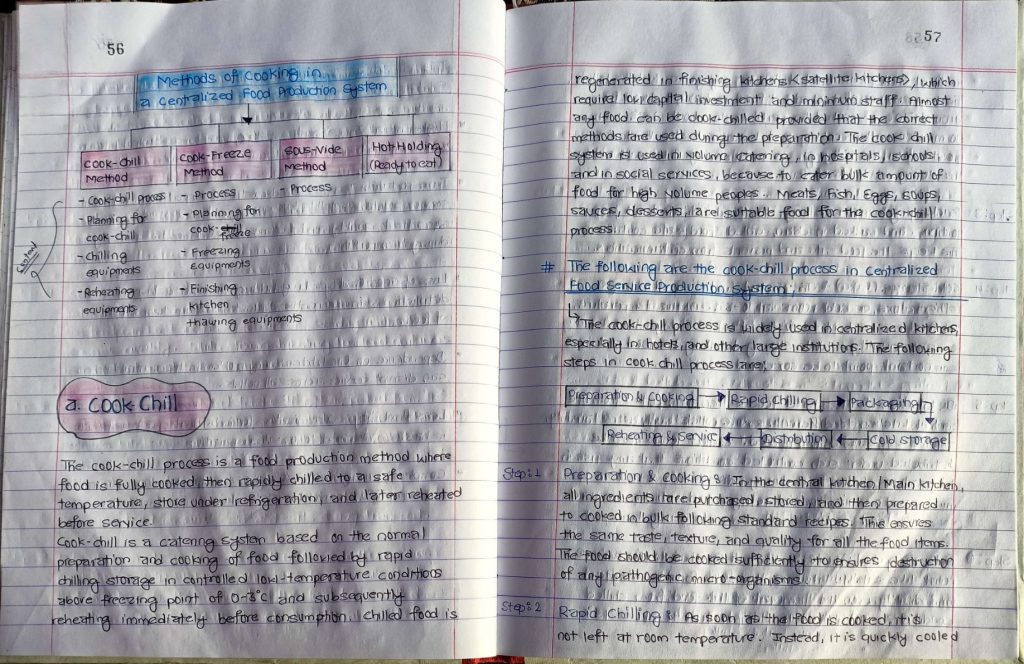 56
Methods of Cooking in
a Centralized Food Production System
Cook-chill
Method
Cook-Freeze
Method
Sous-Vide
Method
Hot Holding
(Ready to eat)
- Cook-chill process
- Planning for
cook-chill
- Chilling
equipments
- Reheating
equipments
- Process
- Planning for
cook-freeze
- Freezing
Equipments
- Finishing
kitchen
thawing equipments
- Process
a. COOK-Chill
The cook-chill process is a food production method where
food is fully cooked, then rapidly chilled to a safe
temperature, store under refrigeration, and later reheated
before service.
Cook-chill is a catering system based on the normal
preparation and cooking of food followed by rapid
chilling storage in controlled low-temperature conditions
above freezing point of 0-3°c and subsequently
reheating immediately before consumption. Chilled food is
57
regenerated in finishing kitchens (satellite kitchens), which
require low capital investment and minimum staff. Almost
any food can be cook-chilled provided that the correct
methods are used during the preparation. The cook chill
system is used in volume catering, in hospitals, schools
and in social services, because to cater bulk amount of
food for high volume peoples. Meats, Fish, Eggs, soups,
sauces, desserts, are suitable food for the cook-chill
process.
# The following are the cook-chill process in Centralized
Food Service Production System:
↳ The cook-chill process is widely used in centralized kitchens,
especially in hotels, and other large institution. The following
steps in cook chill process are:
Preparation & cooking → Rapid chilling → Packaging
Reheating & service ← Distribution ← Cold storage
Step: 1 Preparation & cooking: In the central kitchen/Main kitchen,
all ingredients are purchased, stored, and then prepared
to cooked in bulk following standard recipes. This ensures
the same taste, texture, and quality for all the food items.
The food should be cooked sufficiently to ensures destruction
of any pathogenic micro-organisms.
Step: 2 Rapid Chilling: As soon as the food is cooked, it's
not left at room temperature. Instead, it is quickly cooled